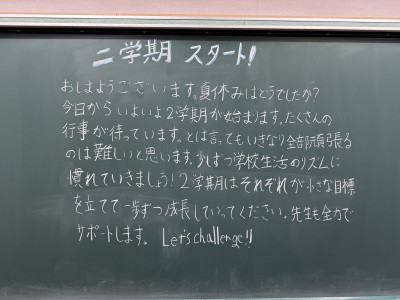 二学期 スタート!
おはようございます。夏休みはどうでしたか?
今日からいよいよ2学期が始まります。たくさんの
行事が待っています。とは言ってもいきなり全部頑張る
のは難しいと思います。少しずつ学校生活のリズムに
慣れていきましょう!2学期はそれぞれが小さな目標
を立てて一歩ずつ成長していってください。先生も全力で
サポートします。 Let's challenge!!